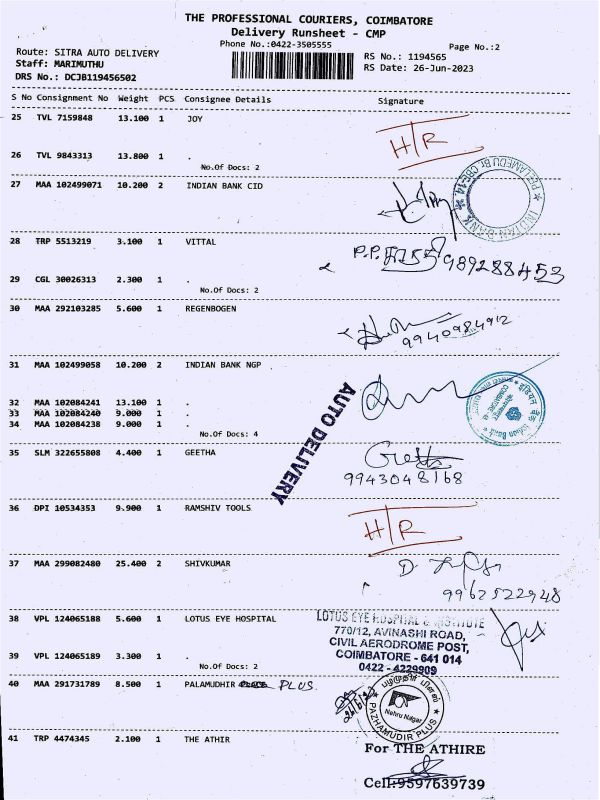 THE PROFESSIONAL COURIERS, COIMBATORE
Delivery Runsheet - CMP
Phone No.:0422-3505555
Page No.:2
Route: SITRA AUTO DELIVERY
Staff: MARIMUTHU
DRS No.: DCJB119456502
RS No.: 1194565
RS Date: 26-Jun-2023
S No Consignment No Weight PCS Consignee Details Signature
25 TVL 7159848 13.100 1 JOY
H/R
26 TVL 9843313 13.800 1 .
No.Of Docs: 2
27 MAA 102499071 10.200 2 INDIAN BANK CID
28 TRP 5513219 3.100 1 VITTAL
P.P. 989288453
29 CGL 30026313 2.300 1 .
No.Of Docs: 2
30 MAA 292103285 5.600 1 REGENBOGEN
9940984912
31 MAA 102499058 10.200 2 INDIAN BANK NGP
32 MAA 102084241 13.100 1 .
33 MAA 102084240 9.000 1 .
34 MAA 102084238 9.000 1 .
No.Of Docs: 4
AUTO DELIVERY
35 SLM 322655808 4.400 1 GEETHA
9943048168
36 DPI 10534353 9.900 1 RAMSHIV TOOLS
H/R
37 MAA 299082480 25.400 2 SHIVKUMAR
D.
9962522948
38 VPL 124065188 5.600 1 LOTUS EYE HOSPITAL
LOTUS EYE HOSPITAL & INSTITUTE
770/12, AVINASHI ROAD,
CIVIL AERODROME POST,
COIMBATORE - 641 014
0422 - 4229909
39 VPL 124065189 3.300 1 .
No.Of Docs: 2
40 MAA 291731789 8.500 1 PALAMUDHIR PLUS
பழமுதிர் பிளஸ்
Nehru Nagar
PAZHAMUDIR PLUS
41 TRP 4474345 2.100 1 THE ATHIR
For THE ATHIRE
Cell:9597639739